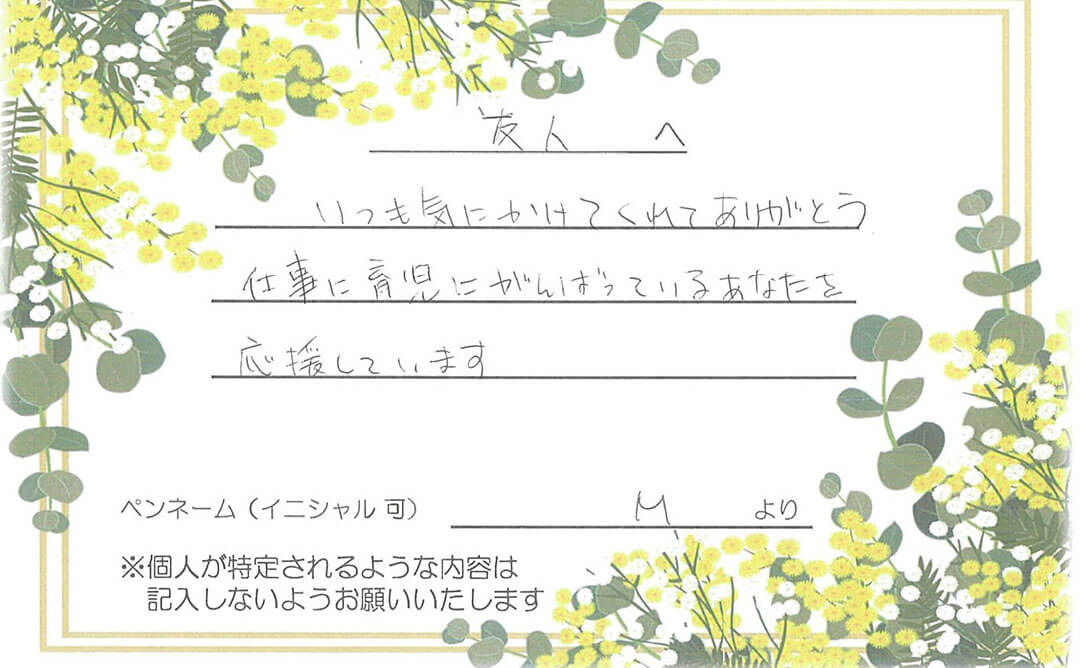 友人 へ
いつも気にかけてくれてありがとう
仕事に育児にがんばっているあなたを
応援しています
ペンネーム（イニシャル 可） M より
※個人が特定されるような内容は
記入しないようお願いいたします